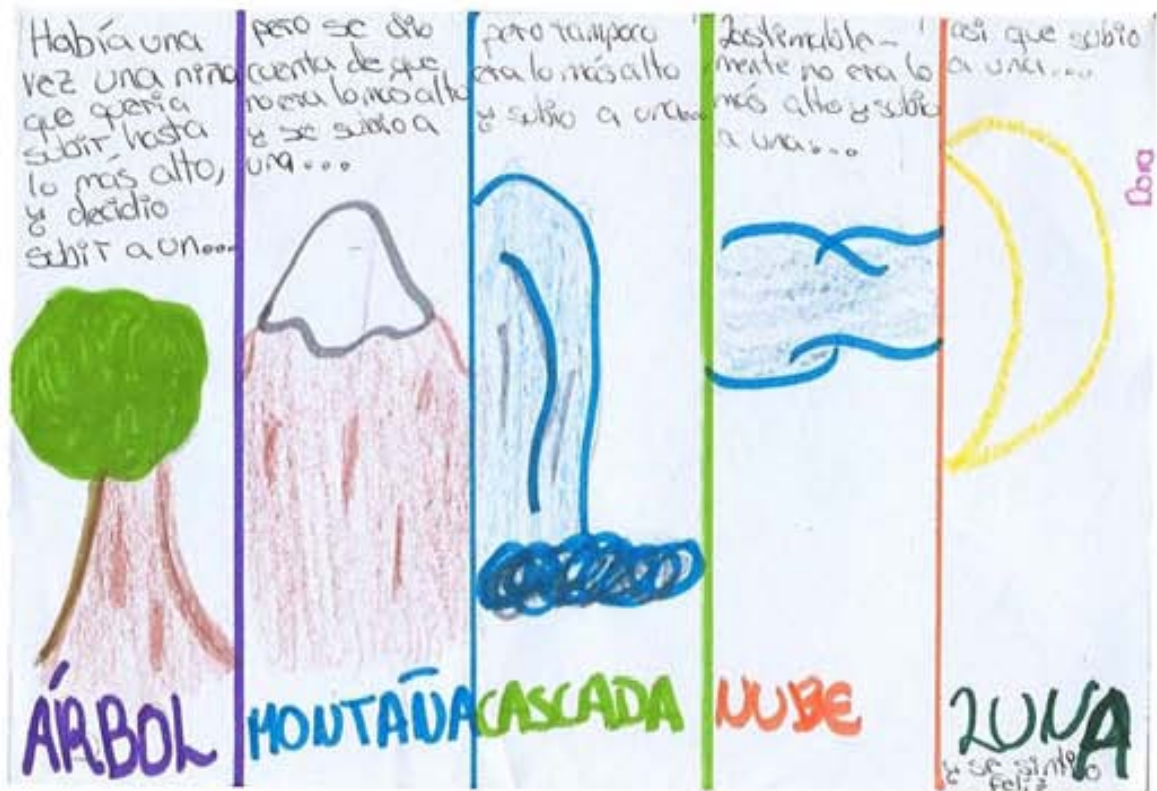 Había una
vez una niña
que queria
subir hasta
lo más alto,
y decidio
subir a un...
ÁRBOL
pero se dio
cuenta de que
no era lo más alto
y se subio a
una...
MONTAÑA
pero tampoco
era lo más alto
y subio a una...
CASCADA
Lastimable-
mente no era lo
más alto y subio
a una...
NUBE
asi que subio
a una...
LUNA
y se sintio
feliz